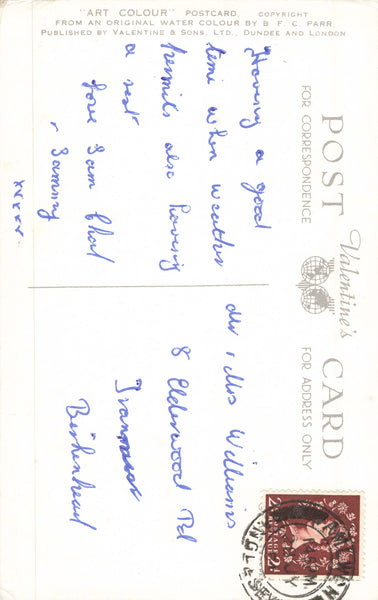 "ART COLOUR" POSTCARD. COPYRIGHT
FROM AN ORIGINAL WATER COLOUR BY B. F. C. PARR.
PUBLISHED BY VALENTINE & SONS, LTD., DUNDEE AND LONDON.
POST CARD
Valentine's
FOR CORRESPONDENCE
FOR ADDRESS ONLY
Having a good
time when weather
permits also having
a rest
love Sam
& Sammy
xxxxx.
Mr & Mrs Williams
8 Elderwood Rd
Tranmere
Birkenhead
POSTAGE